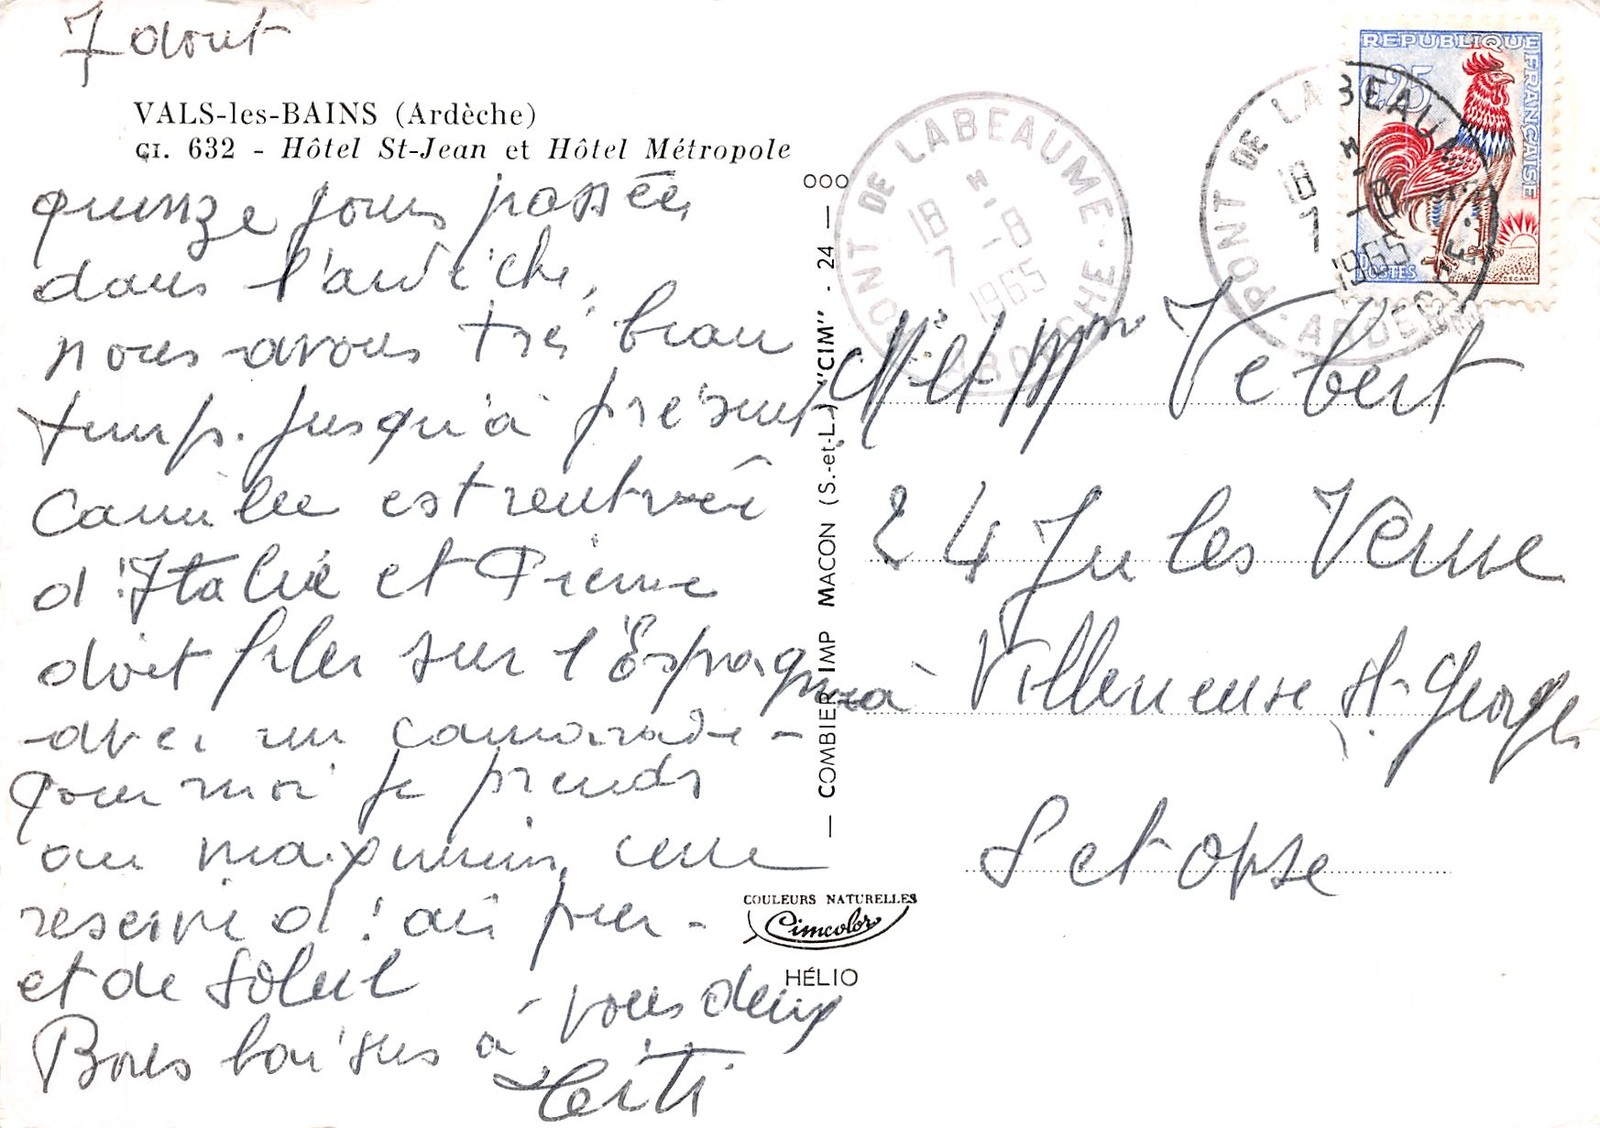 7 aout
VALS-les-BAINS (Ardèche)
CI. 632 - Hôtel St-Jean et Hôtel Métropole
quinze jours passée
dans l'ardèche,
nous avons tres beau
temps. jusqu'à présent,
Camille est rentrée
d'Italie et Pierre
doit filer sur l'Espagne
avec un camarade -
Pour moi je prends
au maximum une
reserve d'air pur -
et de Soleil
Bons baisers à vous deux
Titi
COMBIER IMP MACON (S.-et-L.) "CIM" - 24 -
COULEURS NATURELLES
Cimcolor
HÉLIO
PONT DE LABEAUME
18 H
7 -8
1965
ARDÈCHE
PONT DE LABEAUME
18 H
7 -8
1965
ARDÈCHE
REPUBLIQUE FRANÇAISE
0,25
POSTES
DECARIS
Mr et Mme Vebert
24 Jules Verne
à Villeneuve St-Georges
S et Oise